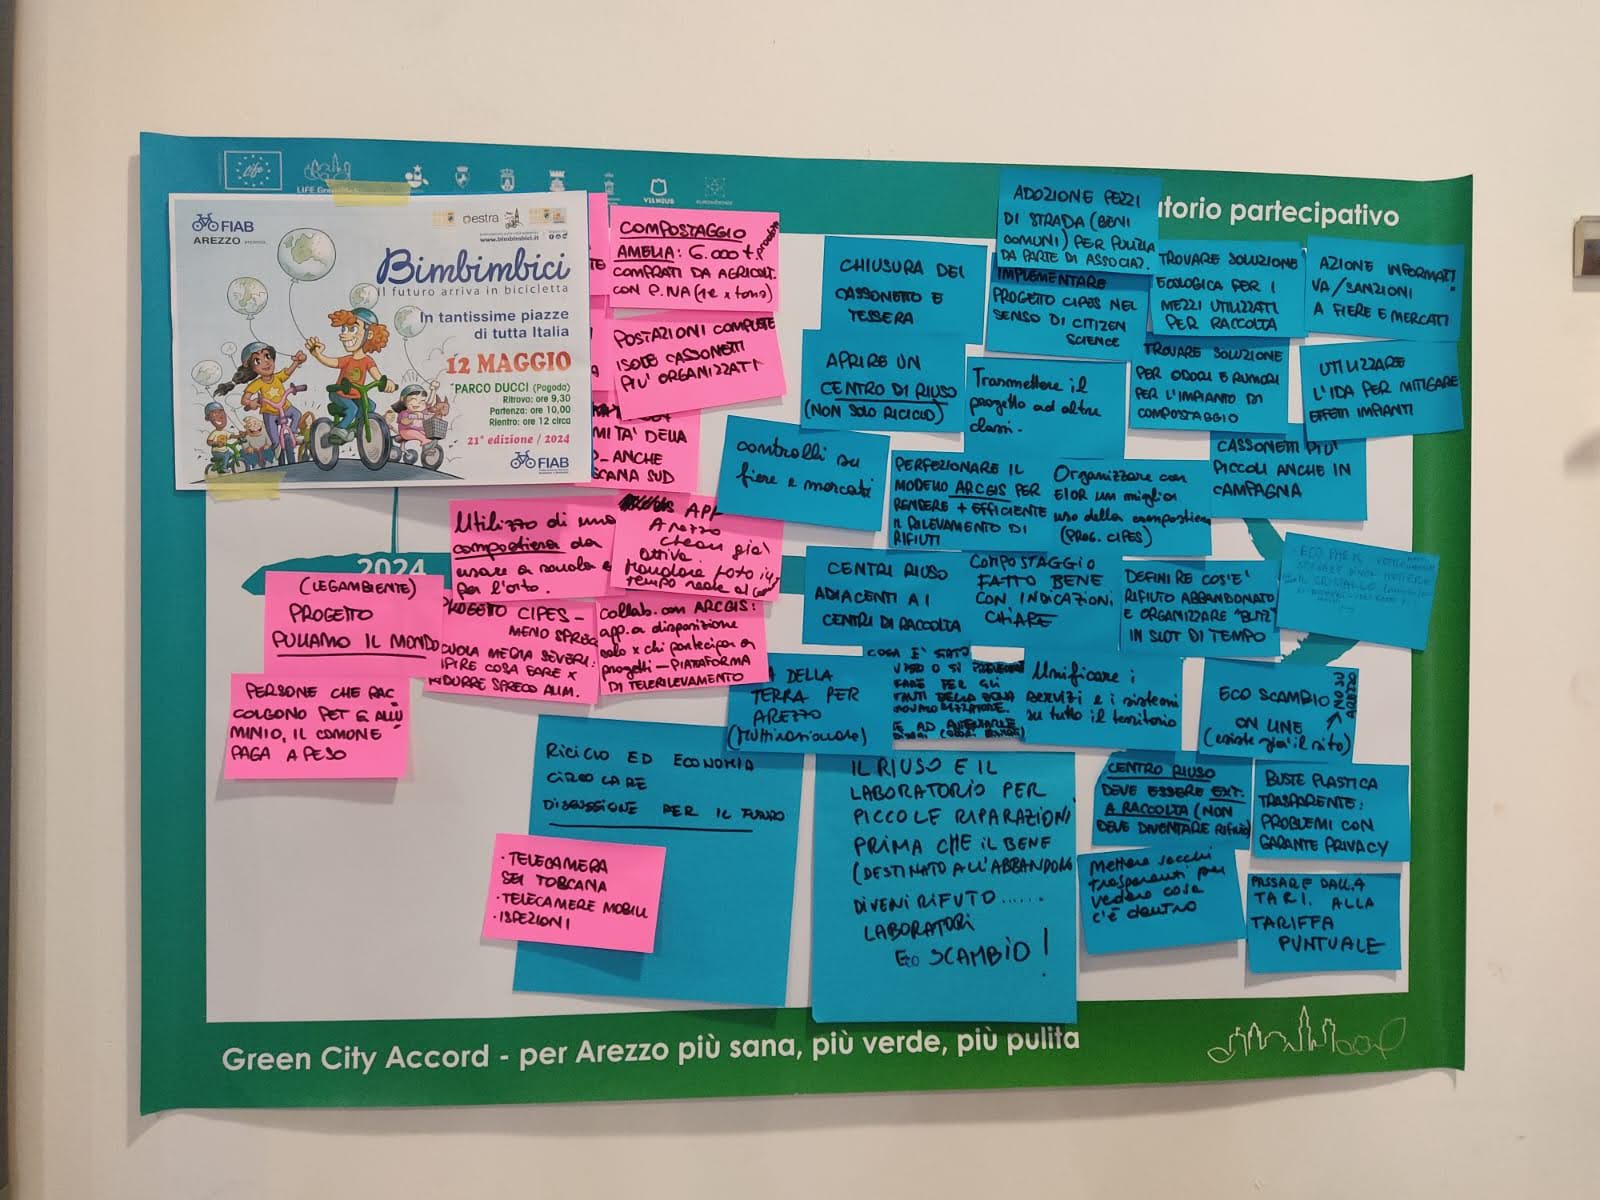 Life
LIFE
VILNIUS
EUROCITIES
torio partecipativo
FIAB
AREZZO
estra
www.bimbimbici.it
Bimbimbici
il futuro arriva in bicicletta
In tantissime piazze
di tutta Italia
12 MAGGIO
PARCO DUCCI (Pagoda)
Ritrovo: ore 9,30
Partenza: ore 10,00
Rientro: ore 12 circa
21° edizione / 2024
FIAB
COMPOSTAGGIO
AMELIA: 6.000 t
COMPRATI DA AGRICOLT.
CON P.IVA (1€ x tonn)
POSTAZIONI COMPLETE
ISOLE CASSONETTI
PIU' ORGANIZZATI
MITA' DELLA
ANCHE
SCANA SUD
Utilizzo di una
compostiera da
usare a scuola e
per l'orto.
APP
Arezzo
clean già
attiva
Mandare foto in
tempo reale al
2024
(LEGAMBIENTE)
PROGETTO
PULIAMO IL MONDO
PROGETTO CIPES -
MENO SPRECO
SCUOLA MEDIA SEVERI:
CAPIRE COSA FARE X
RIDURRE SPRECO ALIM.
Collab. con ARCGIS:
app. a disposizione
solo x chi partecipa a
progetti - PIATTAFORMA
DI TELERILEVAMENTO
PERSONE CHE RAC
COLGONO PET E ALLU
MINIO, IL COMUNE
PAGA A PESO
ADOZIONE PEZZI
DI STRADA (BENI
COMUNI) PER PULIZIA
DA PARTE DI ASSOCIAZ.
CHIUSURA DEL
CASSONETTO E
TESSERA
IMPLEMENTARE
PROGETTO CIPES NEL
SENSO DI CITIZEN
SCIENCE
TROVARE SOLUZIONE
ECOLOGICA PER I
MEZZI UTILIZZATI
PER RACCOLTA
AZIONE INFORMATI
VA/SANZIONI
A FIERE E MERCATI
APRIRE UN
CENTRO DI RIUSO
(NON SOLO RICICLO)
Trasmettere il
progetto ad altre
classi.
TROVARE SOLUZIONE
PER ODORI E RUMORI
PER L'IMPIANTO DI
COMPOSTAGGIO
UTILIZZARE
L'IDA PER MITIGARE
EFFETTI IMPIANTI
controlli su
fiere e mercati
PERFEZIONARE IL
MODELLO ARCGIS PER
RENDERE + EFFICIENTE
IL RILEVAMENTO DI
RIFIUTI
Organizzare con
un miglior
uso della compostiera
(PROG. CIPES)
CASSONETTI PIU'
PICCOLI ANCHE IN
CAMPAGNA
CENTRI RIUSO
ADIACENTI AI
CENTRI DI RACCOLTA
COMPOSTAGGIO
FATTO BENE
CON INDICAZIONI
CHIARE
DEFINIRE COS'E'
RIFIUTO ABBANDONATO
E ORGANIZZARE "BLITZ"
IN SLOT DI TEMPO
DELLA
TERRA PER
AREZZO
(Multinazionale)
COSA E' STATO
FARE PER GLI
Unificare i
servizi e i sistemi
su tutto il territorio
ECO SCAMBIO
ON LINE
(esiste già il sito)
NO SU
AREZZO
RICICLO ED ECONOMIA
CIRCOLARE
DISCUSSIONE PER IL FUTURO
· TELECAMERA
SEI TOSCANA
· TELECAMERE MOBILI
· ISPEZIONI
IL RIUSO E IL
LABORATORIO PER
PICCOLE RIPARAZIONI
PRIMA CHE IL BENE
(DESTINATO ALL'ABBANDONO
DIVENI RIFUTO......
LABORATORI
ECO SCAMBIO!
CENTRO RIUSO
DEVE ESSERE EXT.
A RACCOLTA (NON
DEVE DIVENTARE RIFIUTO)
BUSTE PLASTICA
TRASPARENTE:
PROBLEMI CON
GARANTE PRIVACY
Mettere sacchi
trasparenti per
vedere cosa
c'è dentro
PASSARE DALLA
TARI. ALLA
TARIFFA
PUNTUALE
Green City Accord - per Arezzo più sana, più verde, più pulita